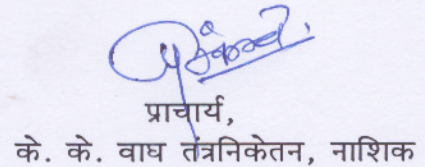 प्राचार्य,
के. के. वाघ तंत्रनिकेतन, नाशिक